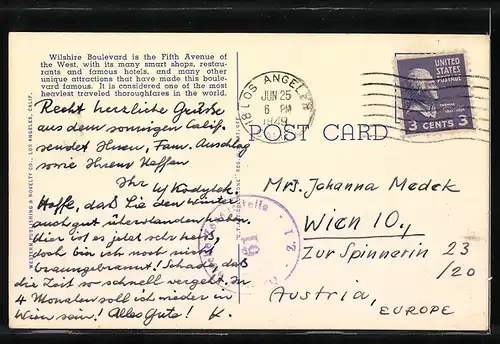 Wilshire Boulevard is the Fifth Avenue of
the West, with its many smart shops, restau-
rants and famous hotels, and many other
unique attractions that have made this boule-
vard famous. It is considered one of the most
heaviest traveled thoroughfares in the world.
Recht herzliche Grüsse
aus dem sonnigen Calif.
sendet Ihnen, Fam. Auschlag
sowie Ihrem Neffen
Ihr
Hoffe, daß Sie den Winter
auch gut überstanden haben.
Hier ist es jetzt sehr heiß,
doch bin ich noch nicht
braungebrannt! Schade, daß
die Zeit so schnell vergeht. In
4 Monaten soll ich wieder in
Wien sein! Alles Gute! K.
WESTERN PUBLISHING & NOVELTY CO., LOS ANGELES, CALIF.
LOS ANGELES
JUN 25
6 PM
1949
UNITED
STATES
POSTAGE
3 CENTS 3
POST CARD
Mrs. Johanna Medek
Wien 10.,
Zur Spinnerin 23
/20
Austria,
EUROPE